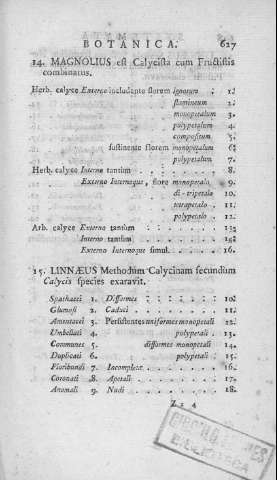 BOTANICA. 627
14. MAGNOLIUS est Calycista cum Fructistis
combinatus.
Herb. calyce Externo includente florem ignotum : 1.
stamineum 2.
monopetalum 3.
polypetalum 4.
compositum 5.
sustinente florem monopetalum 6.
polypetalum 7.
Herb. calyce Interno tantum 8.
Externo Internoque, flore monopetalo. 9.
di-tripetalo 10.
tetrapetalo 11.
polypetalo 12.
Arb. calyce Externo tantum 13.
Interno tantum
Externo Internoque simul. 16.
15. LINNÆUS Methodum Calycinam secundum
Calycis species exaravit.
Spathacei 1. Difformes 10.
Glumosi 2. Caduci 11.
Amentacei 3. Persistentes uniformes monopetali 12.
Umbellati 4. polypetali 13.
Communes 5. difformes monopetali 14.
Duplicati 6. polypetali 15.
Floribundi 7. Incompletæ. 16.
Coronati 8. Apetali 17.
Anomali 9. Nudi 18.
4
BIBLIOTECA